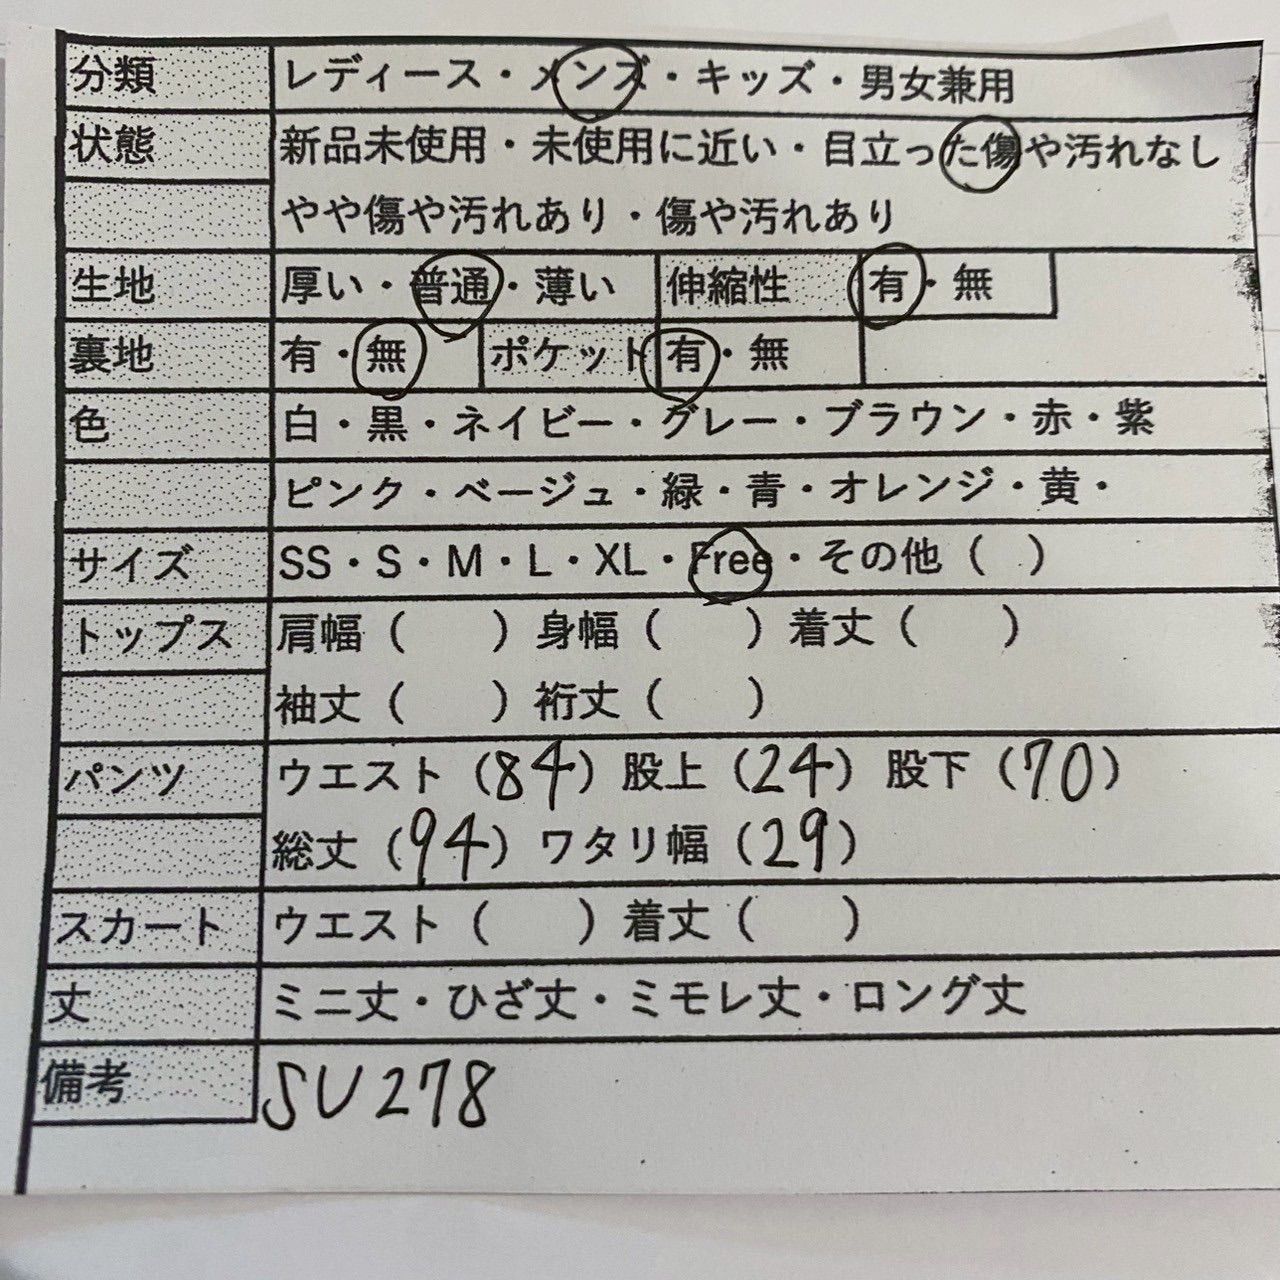 分類 レディース・メンズ・キッズ・男女兼用
状態 新品未使用・未使用に近い・目立った傷や汚れなし
やや傷や汚れあり・傷や汚れあり
生地 厚い・普通・薄い 伸縮性 有・無
裏地 有・無 ポケット 有・無
色 白・黒・ネイビー・グレー・ブラウン・赤・紫
ピンク・ベージュ・緑・青・オレンジ・黄・
サイズ SS・S・M・L・XL・Free・その他( )
トップス 肩幅( ) 身幅( ) 着丈( )
袖丈( ) 裄丈( )
パンツ ウエスト(84) 股上(24) 股下(70)
総丈(94) ワタリ幅(29)
スカート ウエスト( ) 着丈( )
丈 ミニ丈・ひざ丈・ミモレ丈・ロング丈
備考 SU278